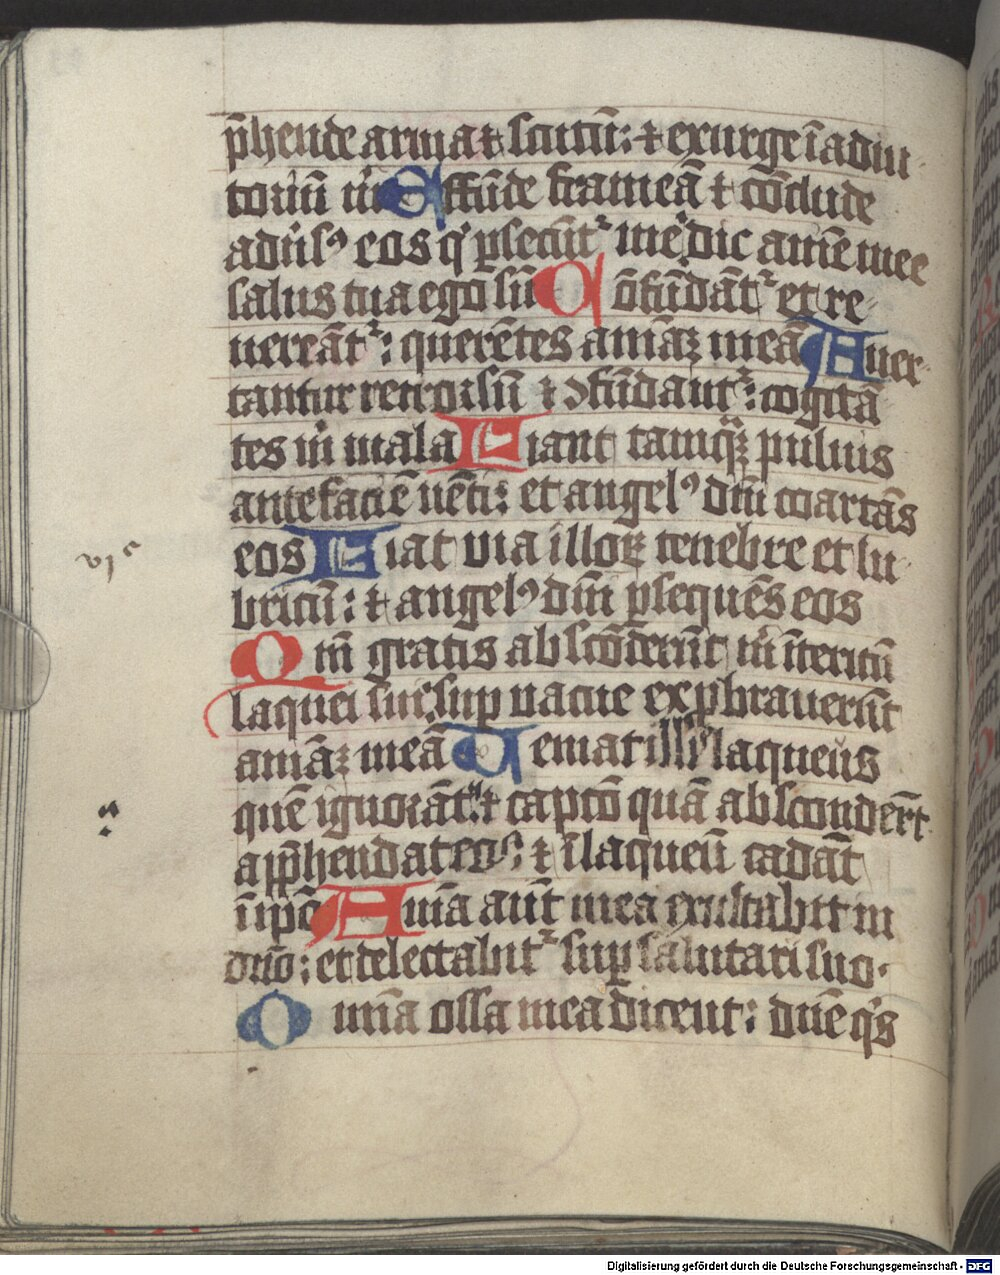 p̄hende arma ⁊ scutū: ⁊ exurge ī adiu-
toriū m̄ Effūde frameā ⁊ cōclude
adūsꝰ eos q̇ ꝑsecūt᷑ me dic anīe mee
salus tua ego sū Cōfūdāt᷑ et re-
uereāt᷑: querētes animāꝫ meā Auer-
tantur retrorsū ⁊ ɔfūdant᷑: cogitā
tes ṁ mala Fiant tamqȝ puluis
ante faciē uēti: et angelꝰ dn̄i coartās
eos Fiat via illoꝝ tenebre et lu-
bricū: ⁊ angelꝰ dn̄i ꝑsequēs eos
Qm̄ gratis absconderūt ṁ īteritū
laquei sui: suꝑ vacue exꝓbrauerūt
animāꝫ meā Veniat illi laqueus
quē ignorāt: ⁊ captō quā absconderūt
app̄hendat eos: ⁊ ī laqueū cadāt
ī ip̄o Anīa aūt mea exultabit in
dn̄o: et delectabit᷑ suꝑ salutari suo.
Omīa ossa mea dicent: dn̄e q̇s
Digitalisierung gefördert durch die Deutsche Forschungsgemeinschaft - DFG